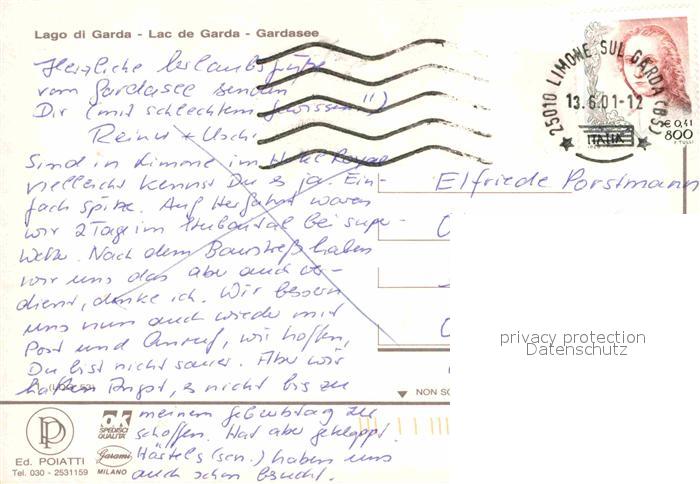 Lago di Garda - Lac de Garda - Gardasee
Herzliche Urlaubsgrüße
vom Gardasee senden
Dir (mit schlechtem Gewissen!!)
Reiner + Uschi
Sind in Limone im Hotel Royal
vielleicht kennst Du es ja. Ein-
fach spitze. Auf Herfahrt waren
wir 2 Tage im Stubaital bei super
Wetter. Nach dem Baustreß haben
wir uns das aber auch ver-
dient, denke ich. Wir bessern
uns nun auch wieder mit
Post und Anruf, wir hoffen,
Du bist nicht sauer. Aber wir
hatten Angst, es nicht bis zu
meinem Geburtstag zu
schaffen. Hat aber geklappt.
Härtels (sen.) haben uns
auch schon besucht.
25010 LIMONE SUL GARDA (BS)
13.6.01-12
€ 0,41
800
ITALIA
Elfriede Porstmann
privacy protection
Datenschutz
NON SC
PP
Ed. POIATTI
Tel. 030 - 2531159
OK
SPEDISCI
QUALITA'
Garami
MILANO